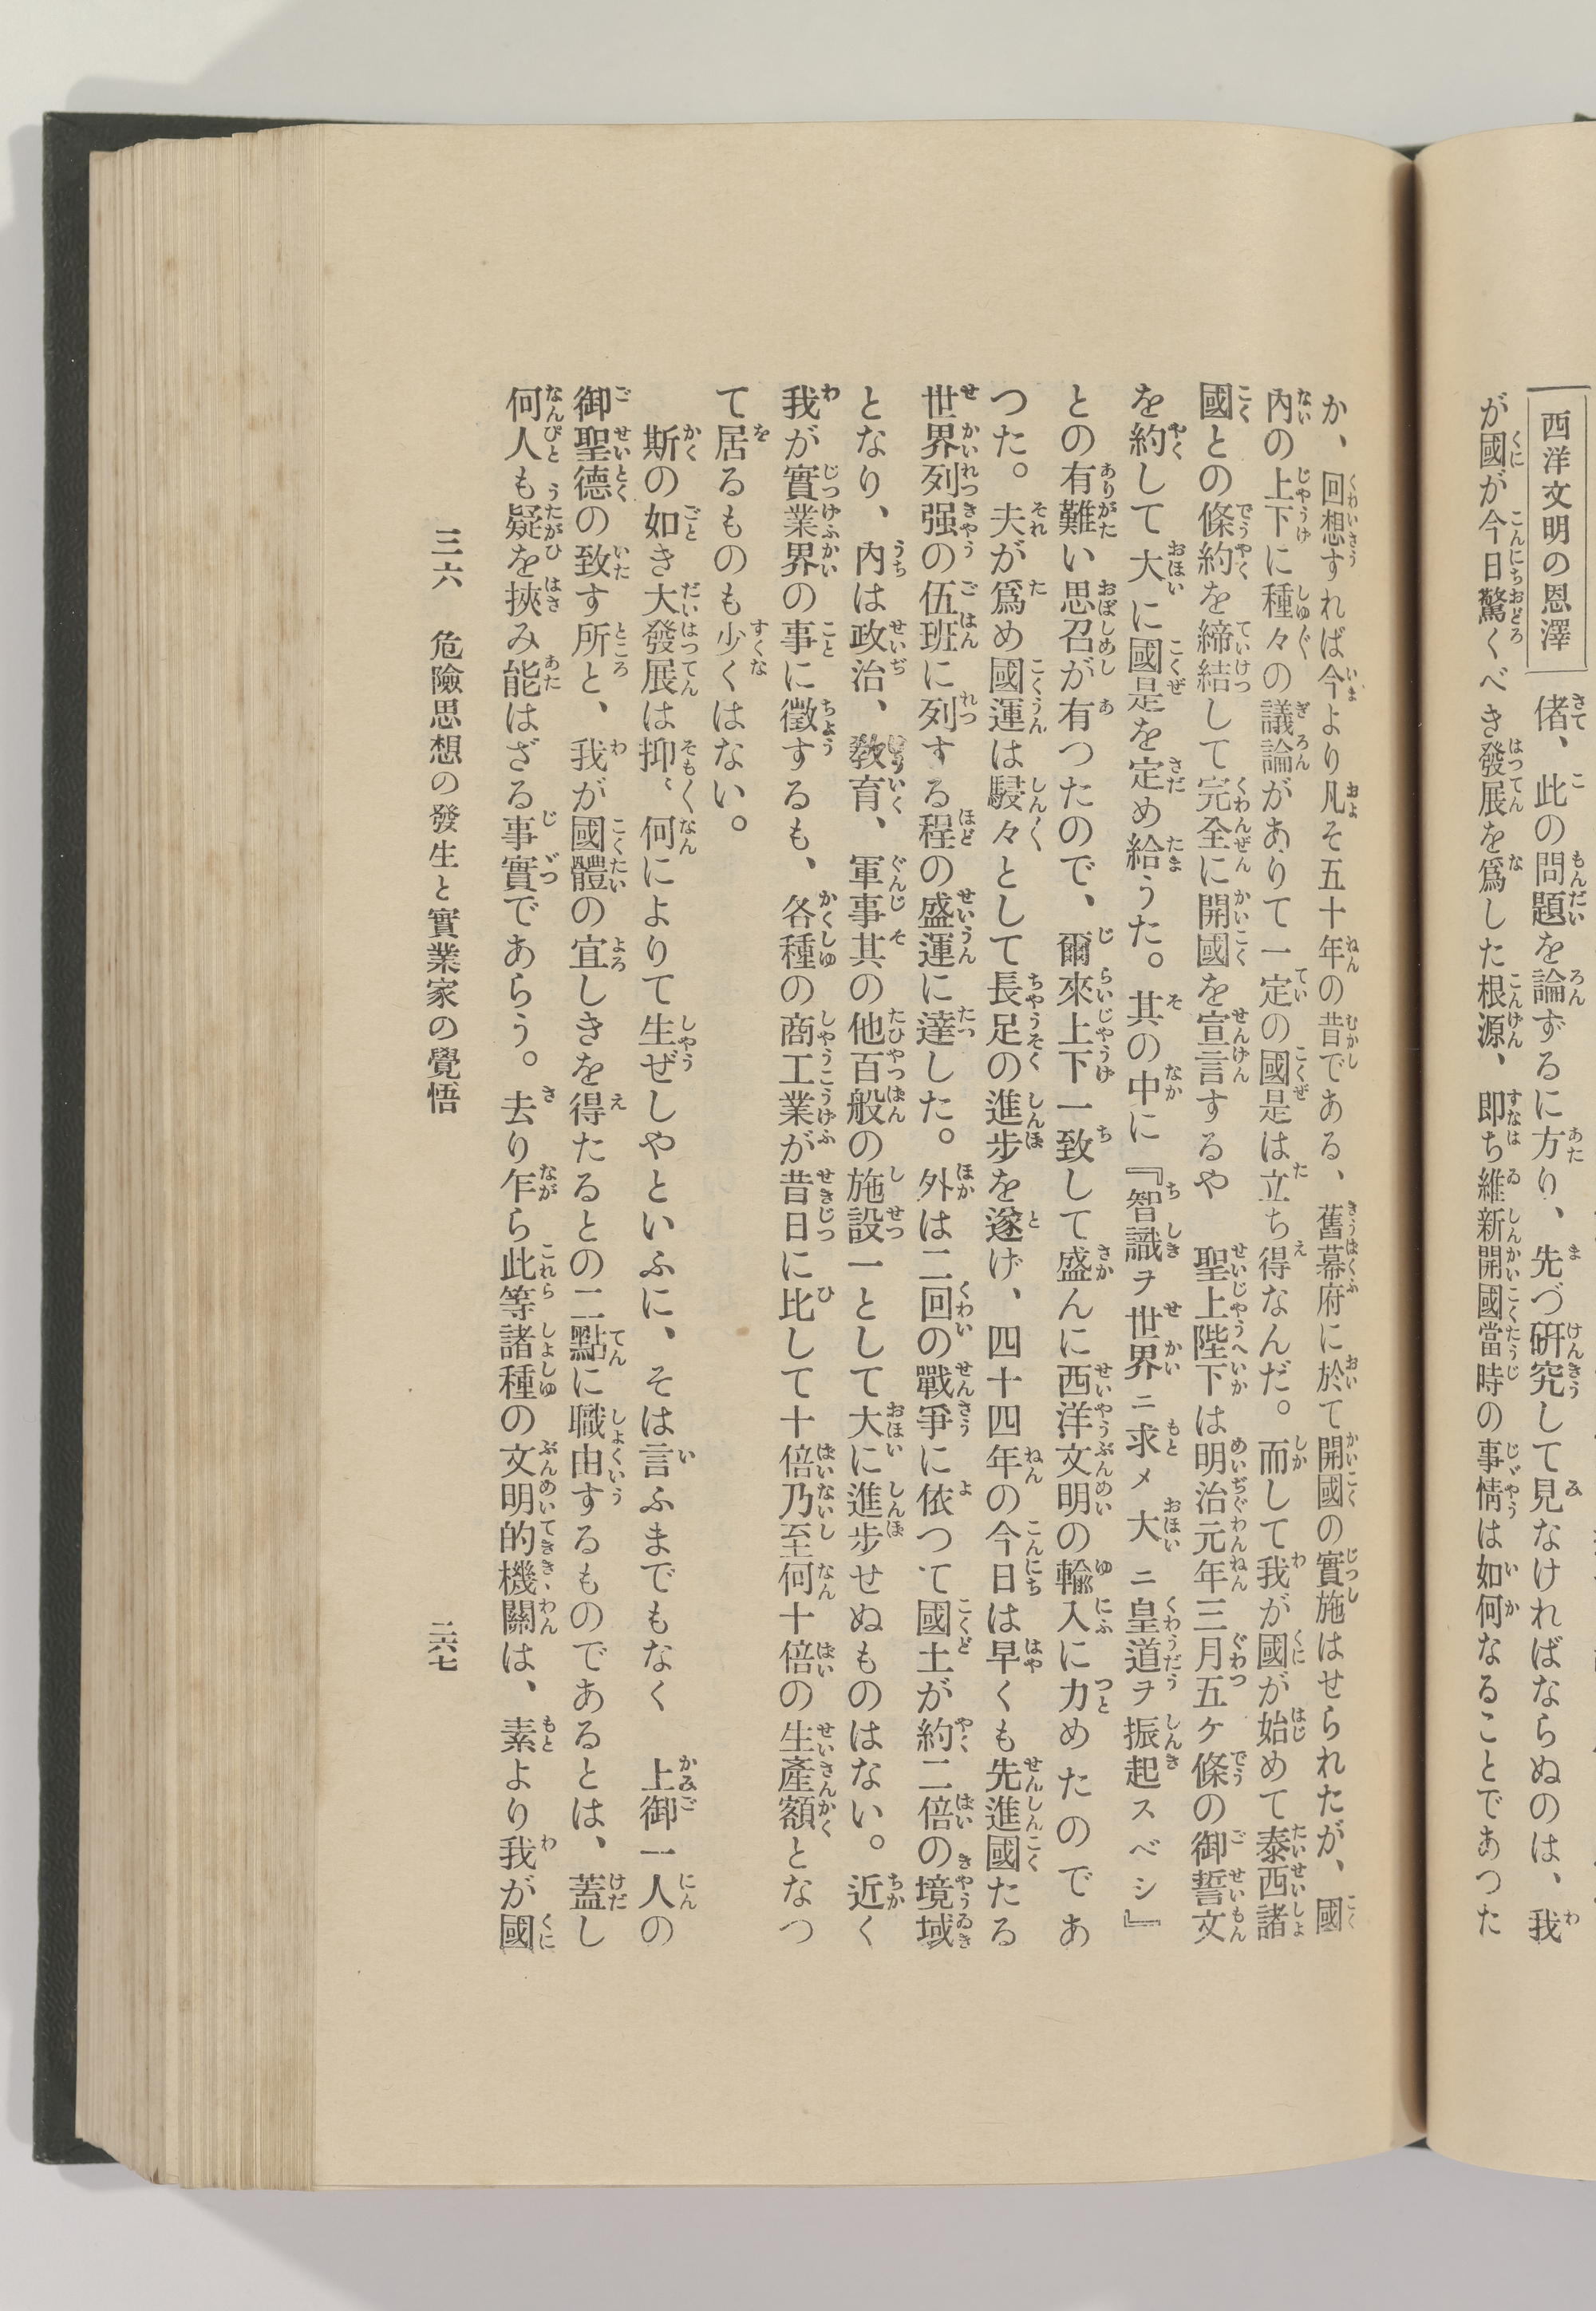 西洋文明の恩澤
偖、此の問題を論ずるに方り、先づ硏究して見なければならぬのは、我
が國が今日驚くべき發展を爲した根源、卽ち維新開國當時の事情は如何なることであつた
か、回想すれば今より凡そ五十年の昔である、舊幕府に於て開國の實施はせられたが、國
內の上下に種々の議論がありて一定の國是は立ち得なんだ。而して我が國が始めて泰西諸
國との條約を締結して完全に開國を宣言するや　聖上陛下は明治元年三月五ケ條の御誓文
を約して大に國是を定め給うた。其の中に『智識ヲ世界ニ求メ大ニ皇道ヲ振起スベシ』
との有難い思召が有つたので、爾來上下一致して盛んに西洋文明の輸入に力めたのであ
つた。夫が爲め國運は駸々として長足の進步を遂げ、四十四年の今日は早くも先進國たる
世界列强の伍班に列する程の盛運に達した。外は二回の戰爭に依つて國土が約二倍の境域
となり、內は政治、敎育、軍事其の他百般の施設一として大に進步せぬものはない。近く
我が實業界の事に徵するも、各種の商工業が昔日に比して十倍乃至何十倍の生產額となつ
て居るものも少くはない。
斯の如き大發展は抑〻何によりて生ぜしやといふに、そは言ふまでもなく　上御一人の
御聖德の致す所と、我が國體の宜しきを得たるとの二點に職由するものであるとは、蓋し
何人も疑を挾み能はざる事實であらう。去り乍ら此等諸種の文明的機關は、素より我が國
三六　危險思想の發生と實業家の覺悟
二六七